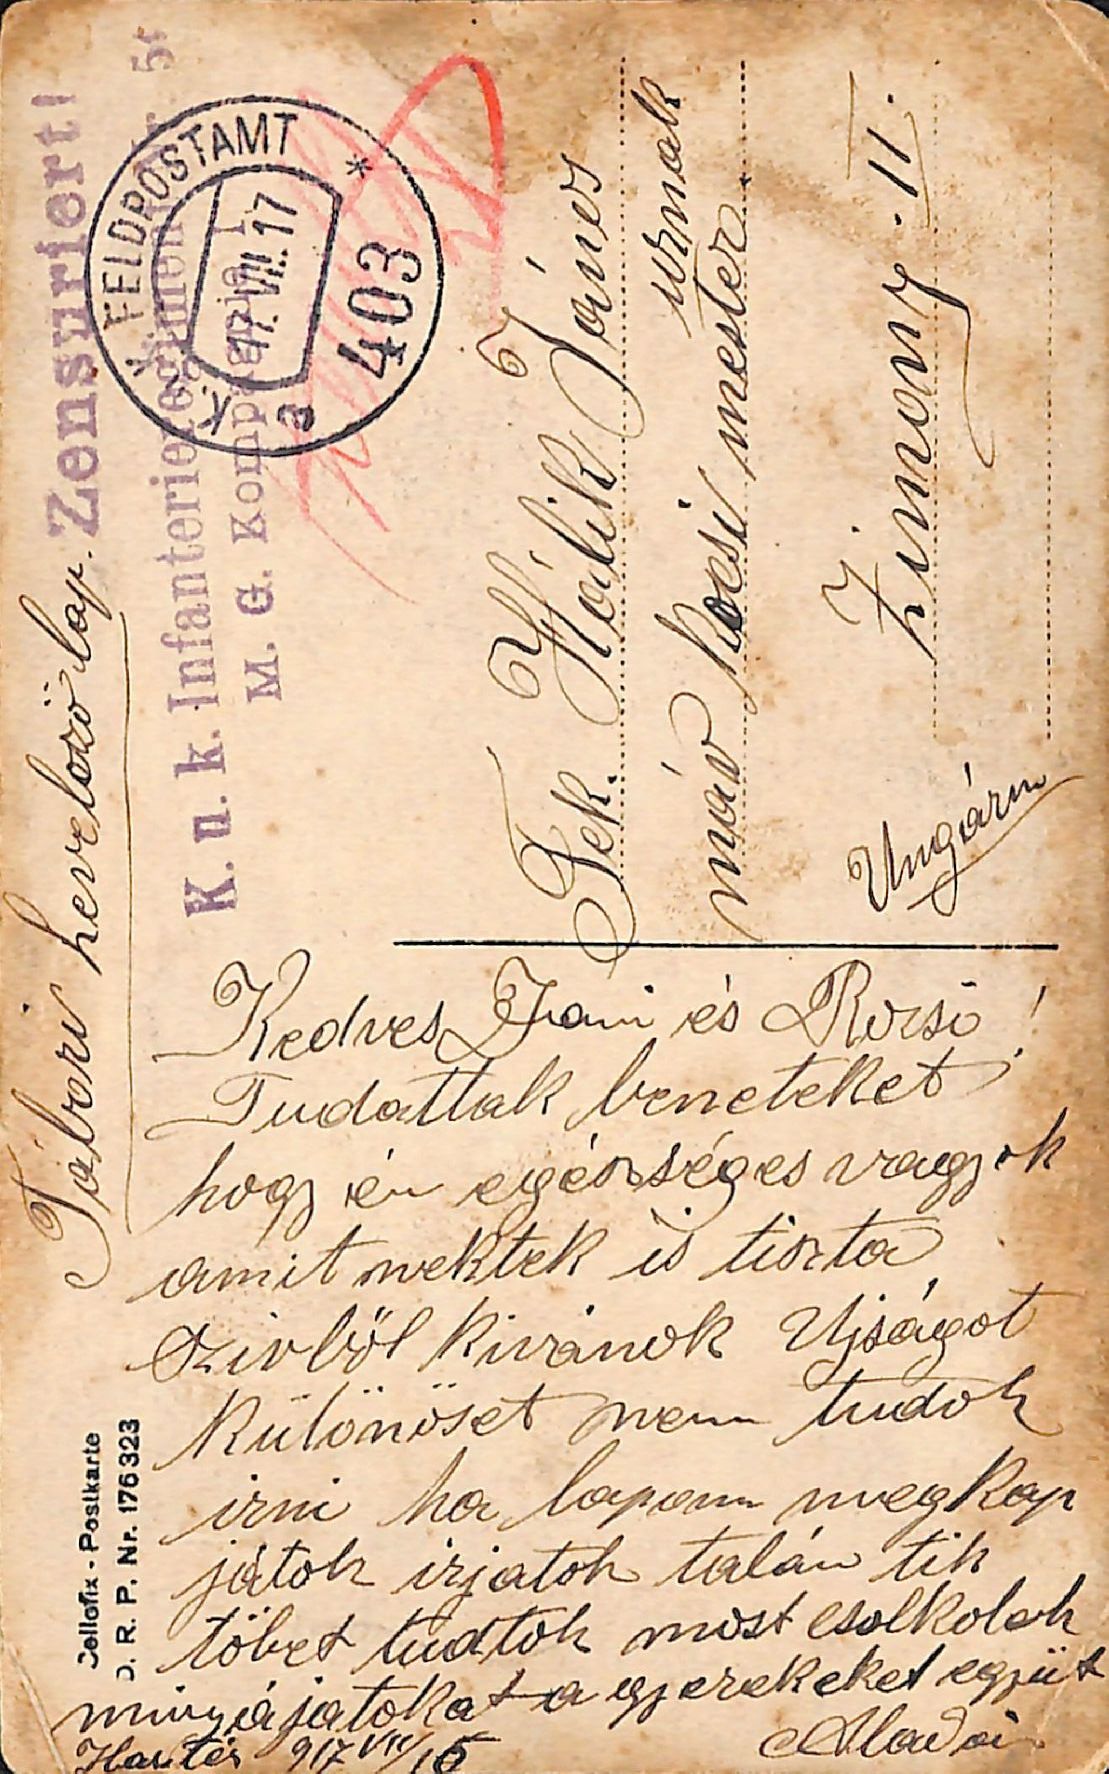 Tábori levelező lap.
Zensuriert!
K. u. k. Infanterieregiment Nr. 5
M. G. Kompagnie I
FELDPOSTAMT
17. VII. 17
a
403
Tek. Hólik János
urnak
máv Kocsi mester
Zimony. II.
Ungárn
Kedves Jani és Rozsi!
Tudattak beneteket
hogy én egésséges vagyok
amit nektek is tiszta
szivből kivánok Ujságot
különöset nem tudok
irni ha lapom megkap
játok irjatok talán tik
töbet tudtok most csolkolak
minyájatokat a gyerekekel együt
917 VII/15 Aladár
Cellofix - Postkarte
D. R. P. Nr. 176323